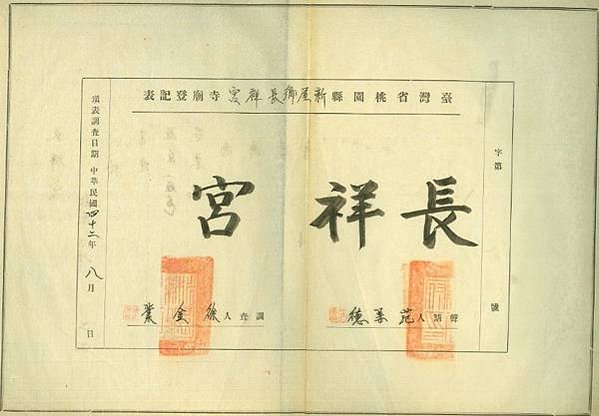 臺灣省桃園縣新屋鄉長祥宮寺廟登記表
字第 號
長祥宮
聲請人 范 德
調查人 徐金
填表調查日期 中華民國四十二年八月 日